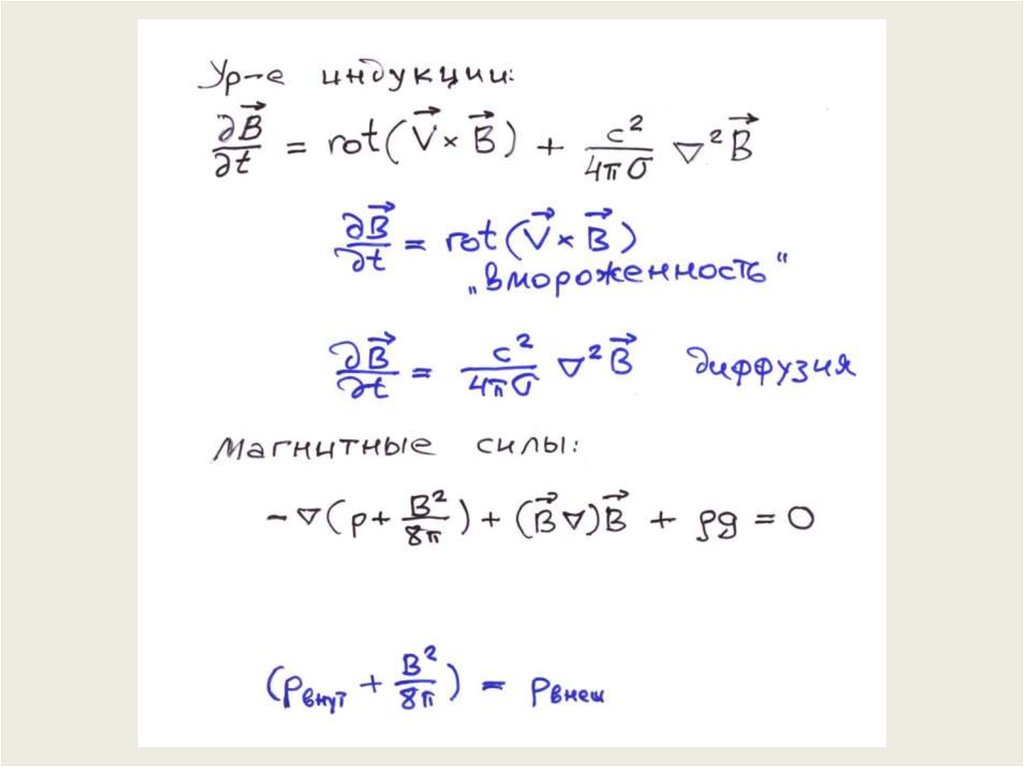 Ур-е индукции:
∂B⃗/∂t = rot(V⃗ × B⃗) + c²/4πσ ∇²B⃗
∂B⃗/∂t = rot(V⃗ × B⃗)
„вмороженность“
∂B⃗/∂t = c²/4πσ ∇²B⃗ диффузия
Магнитные силы:
-∇(p + B²/8π) + (B⃗∇)B⃗ + ρg = 0
(Pвнут + B²/8π) = Pвнеш